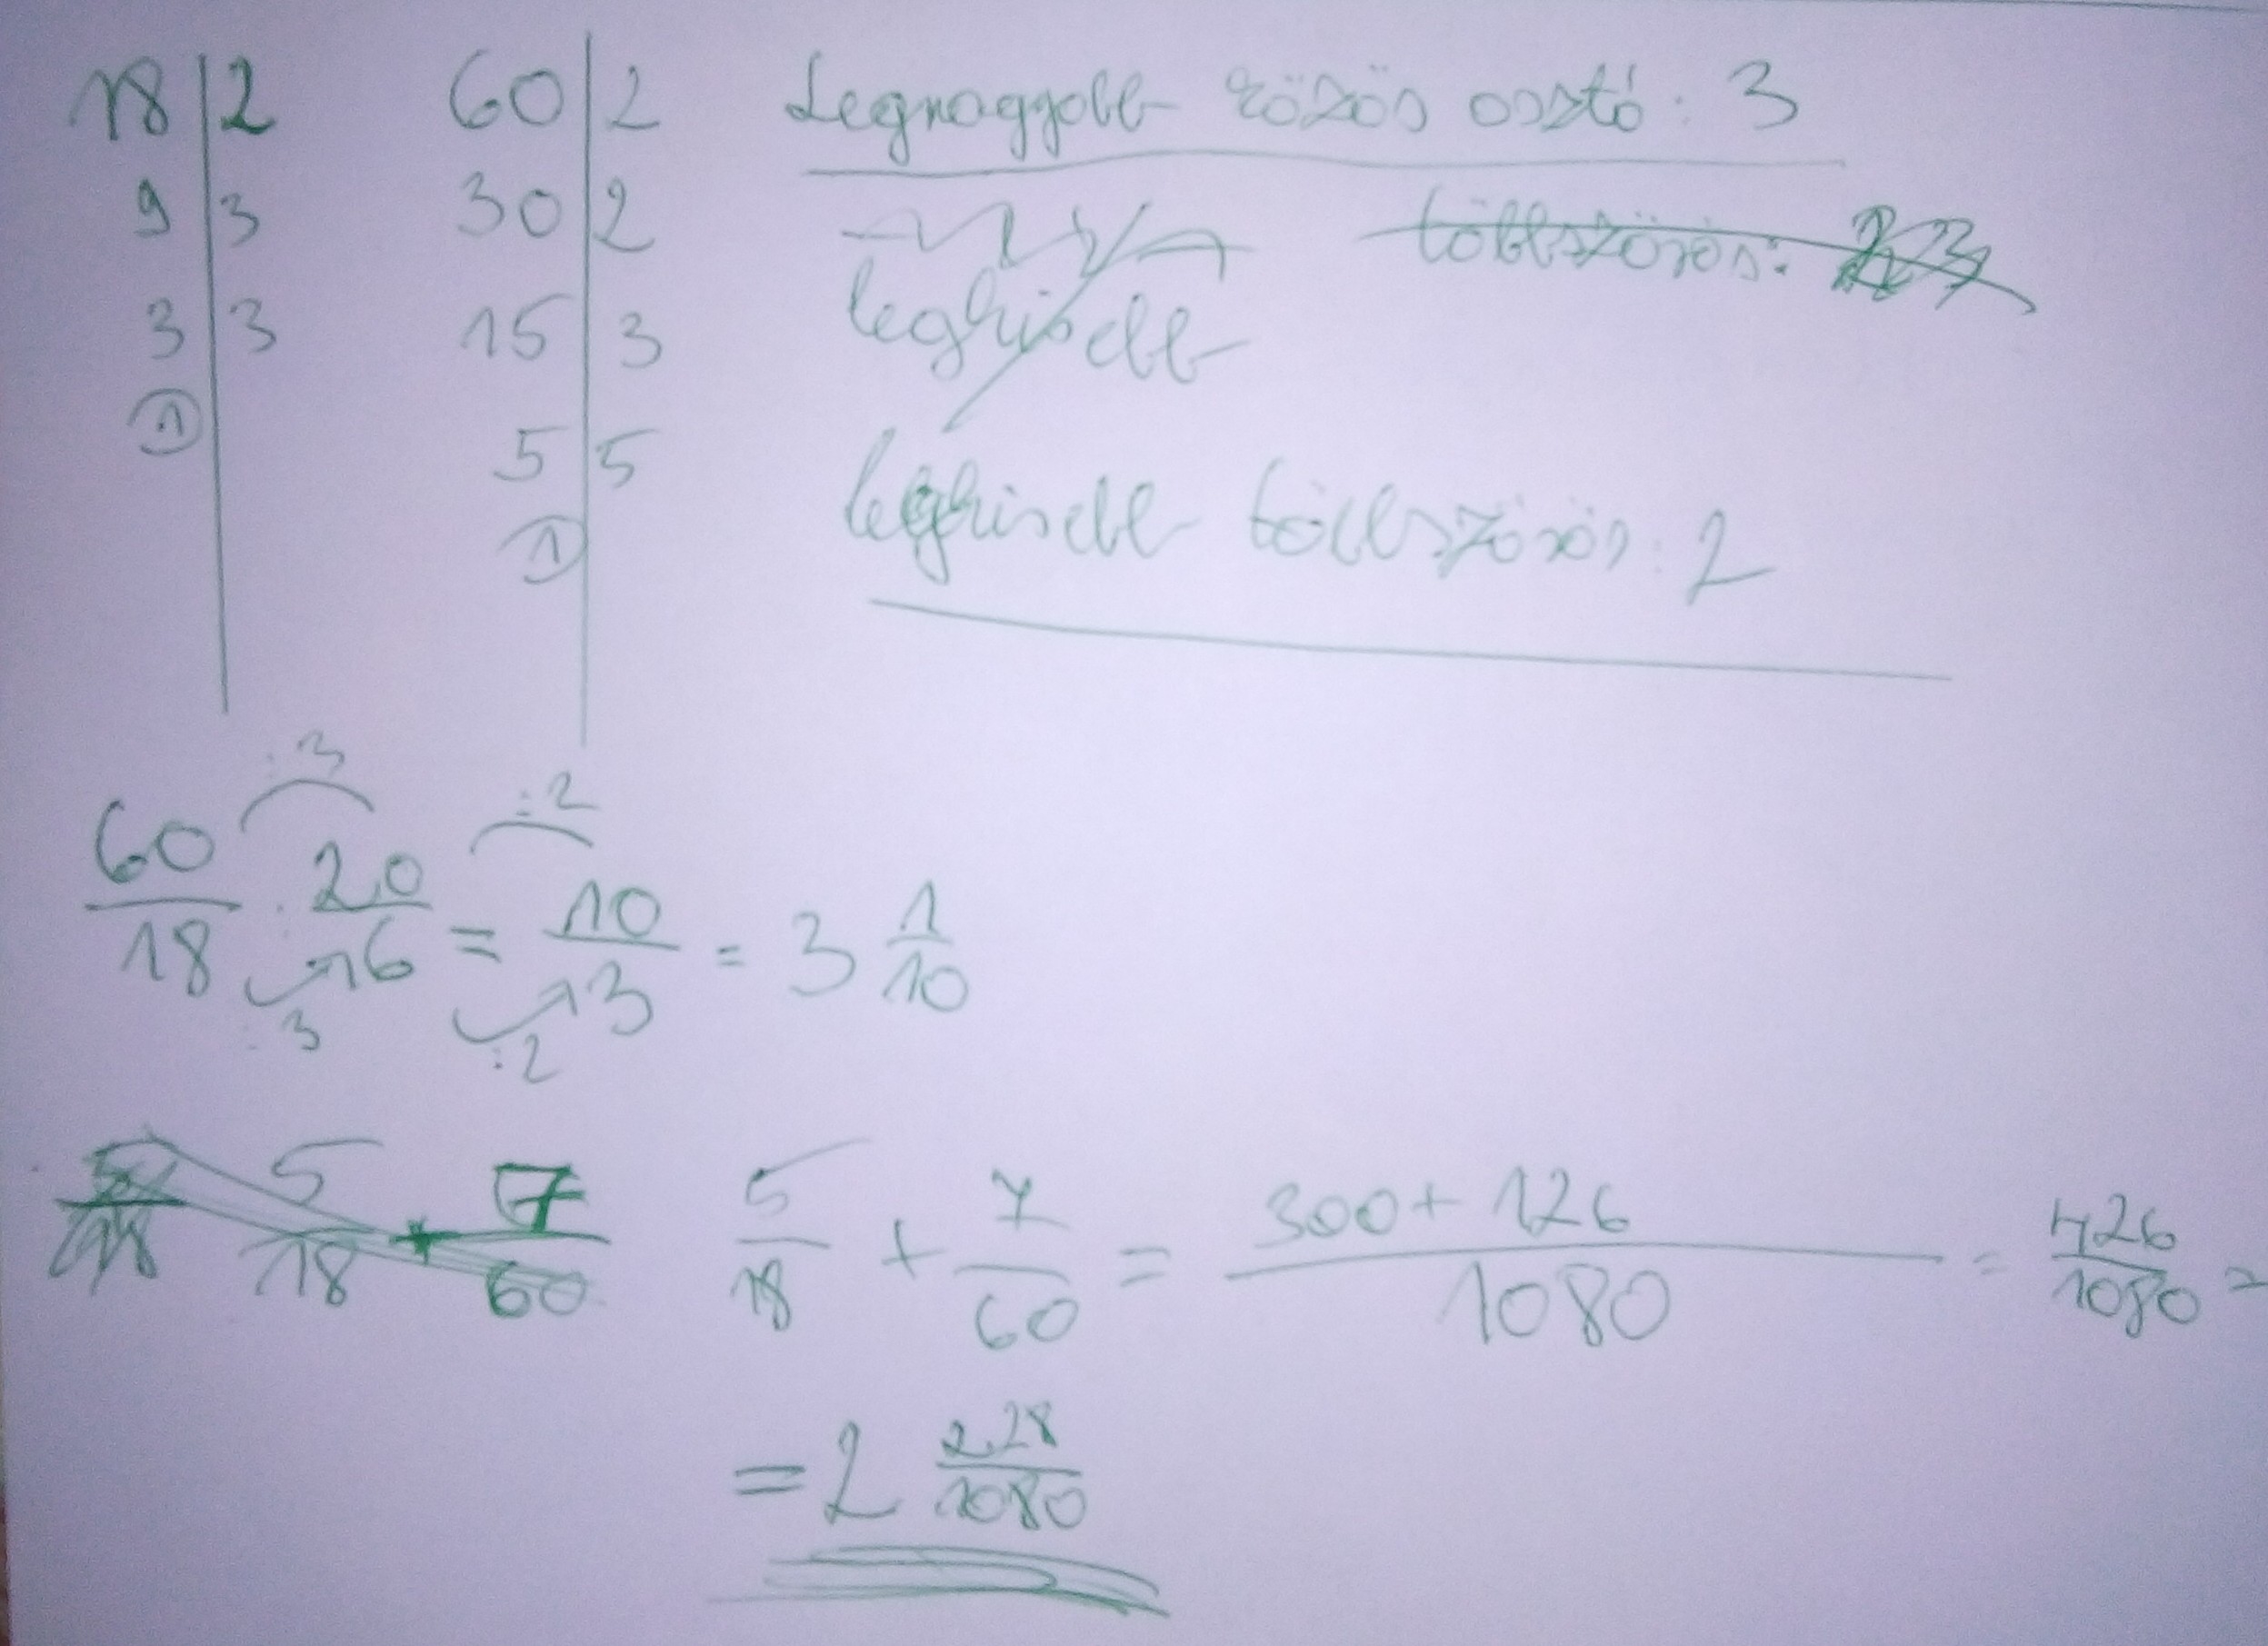 18 | 2
9 | 3
3 | 3
1
60 | 2
30 | 2
15 | 3
5 | 5
1
Legnagyobb közös osztó: 3
többszörös:
legkisebb
legkisebb többszörös: 2
:3 :2
60/18 : 20/6 = 10/3 = 3 1/10
:3 :2
5/18 + 7/60
5/18 + 7/60 = 300+126/1080 = 426/1080 =
= 2 228/1080